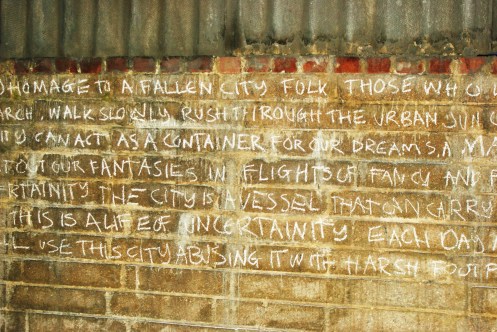 HOMAGE TO A FALLEN CITY FOLK. THOSE WHO
ARCH, WALK SLOWLY, RUSH THROUGH THE URBAN JUN
CAN ACT AS A CONTAINER FOR OUR DREAMS. A MA
OUT OUR FANTASIES IN FLIGHTS OF FANCY AND
ERTAINITY THE CITY IS A VESSEL THAT CAN CARRY
THIS IS A LIFE OF UNCERTAINITY EACH
LL USE THIS CITY ABUSING IT WITH HARSH